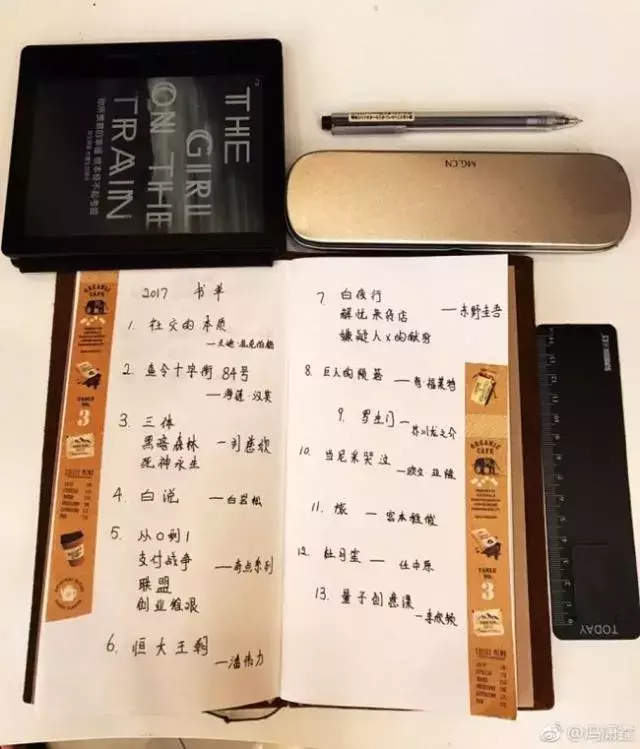 THE
GIRL
ON THE
TRAIN
MG.CN
2017 书单
1. 社交的本质
2. 查令十字街84号
—海莲·汉芙
3. 三体
黑暗森林 —刘慈欣
死神永生
4. 白说 —白岩松
5. 从0到1
支付战争 —奇点系列
联盟
创业维艰
6. 恒大王朝
7. 白夜行
解忧杂货店 —东野圭吾
嫌疑人x的献身
8. 巨人的陨落 —肯·福莱特
9. 罗生门 —芥川龙之介
10. 当尼采哭泣 —欧文·亚隆
11.
12. 杜月笙 —
13. 量子创意
ORGANIC
CAFE
TABLE
NO.
3
COFFEE MENU
ORGANIC
CAFE
TABLE
NO.
3
COFFEE MENU
TODAY